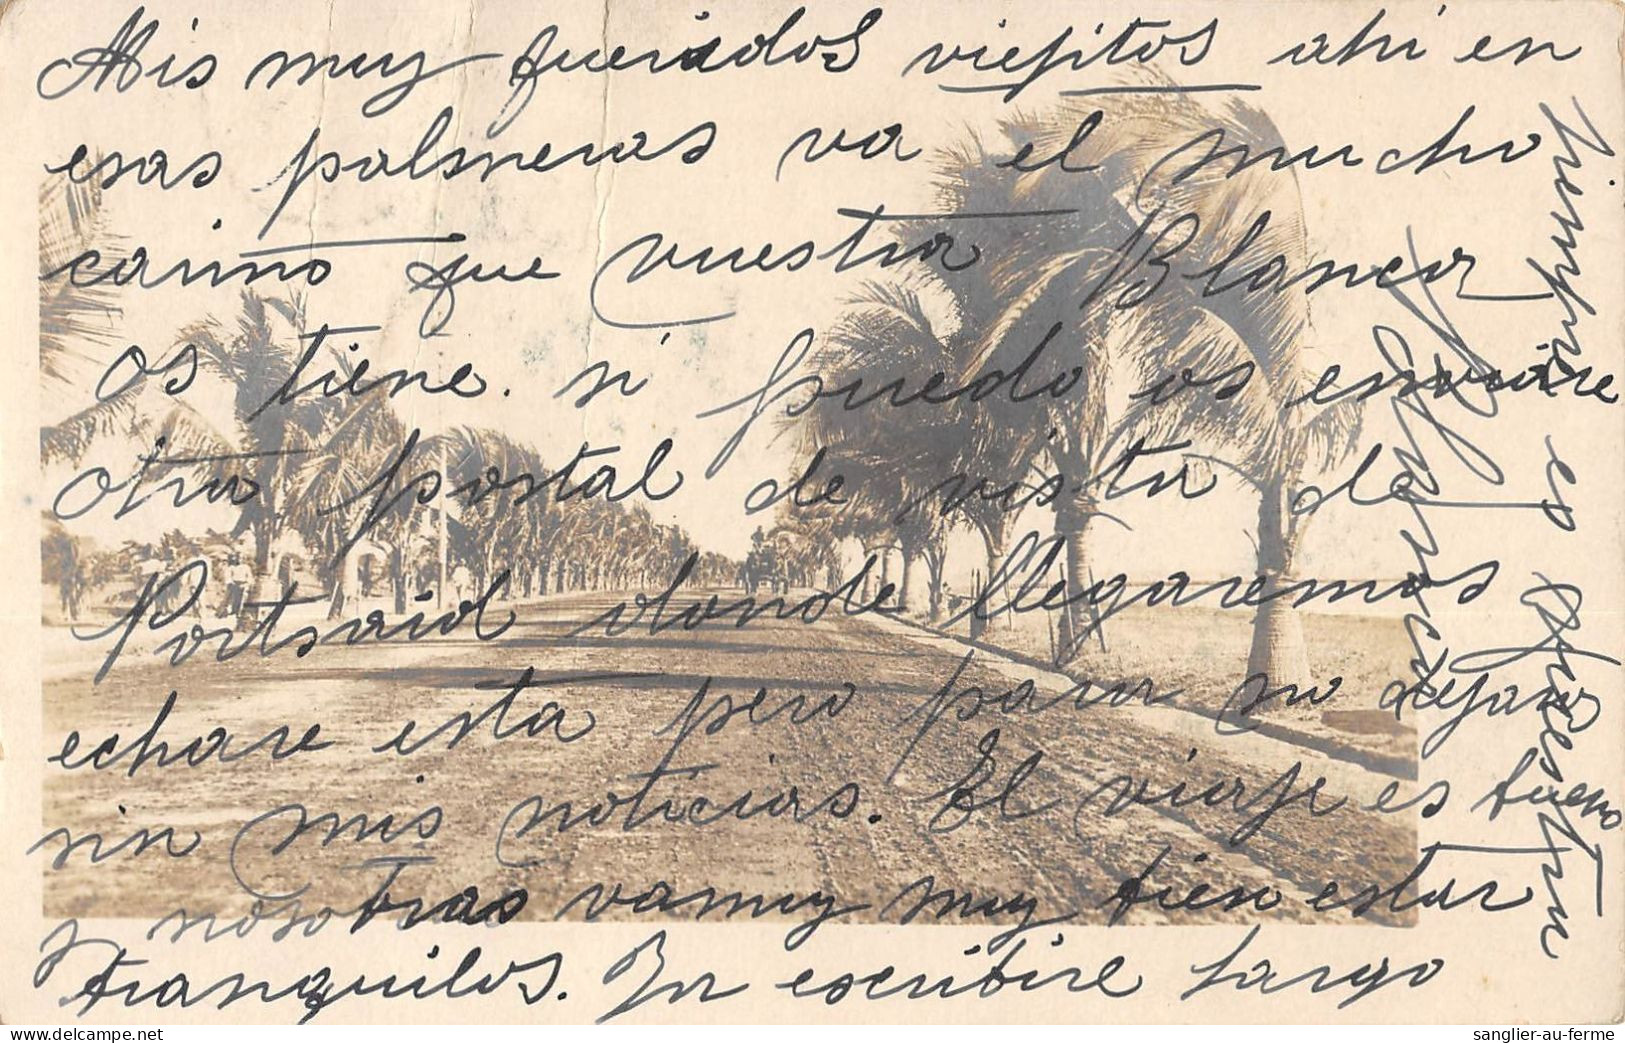 Mis muy queridos viejitos ahi en
esas palmeras va el mucho
cariño que vuestra Blanca
os tiene. si puedo os enviare
otra postal de vista de
Portsaid donde llegaremos
echare esta pero para no dejar
sin mis noticias. El viaje es bueno
y nosotras vamuy muy bien estar
tranquilos. Ya escribire largo
siempre es vuestra
Blanca
sanglier-au-ferme